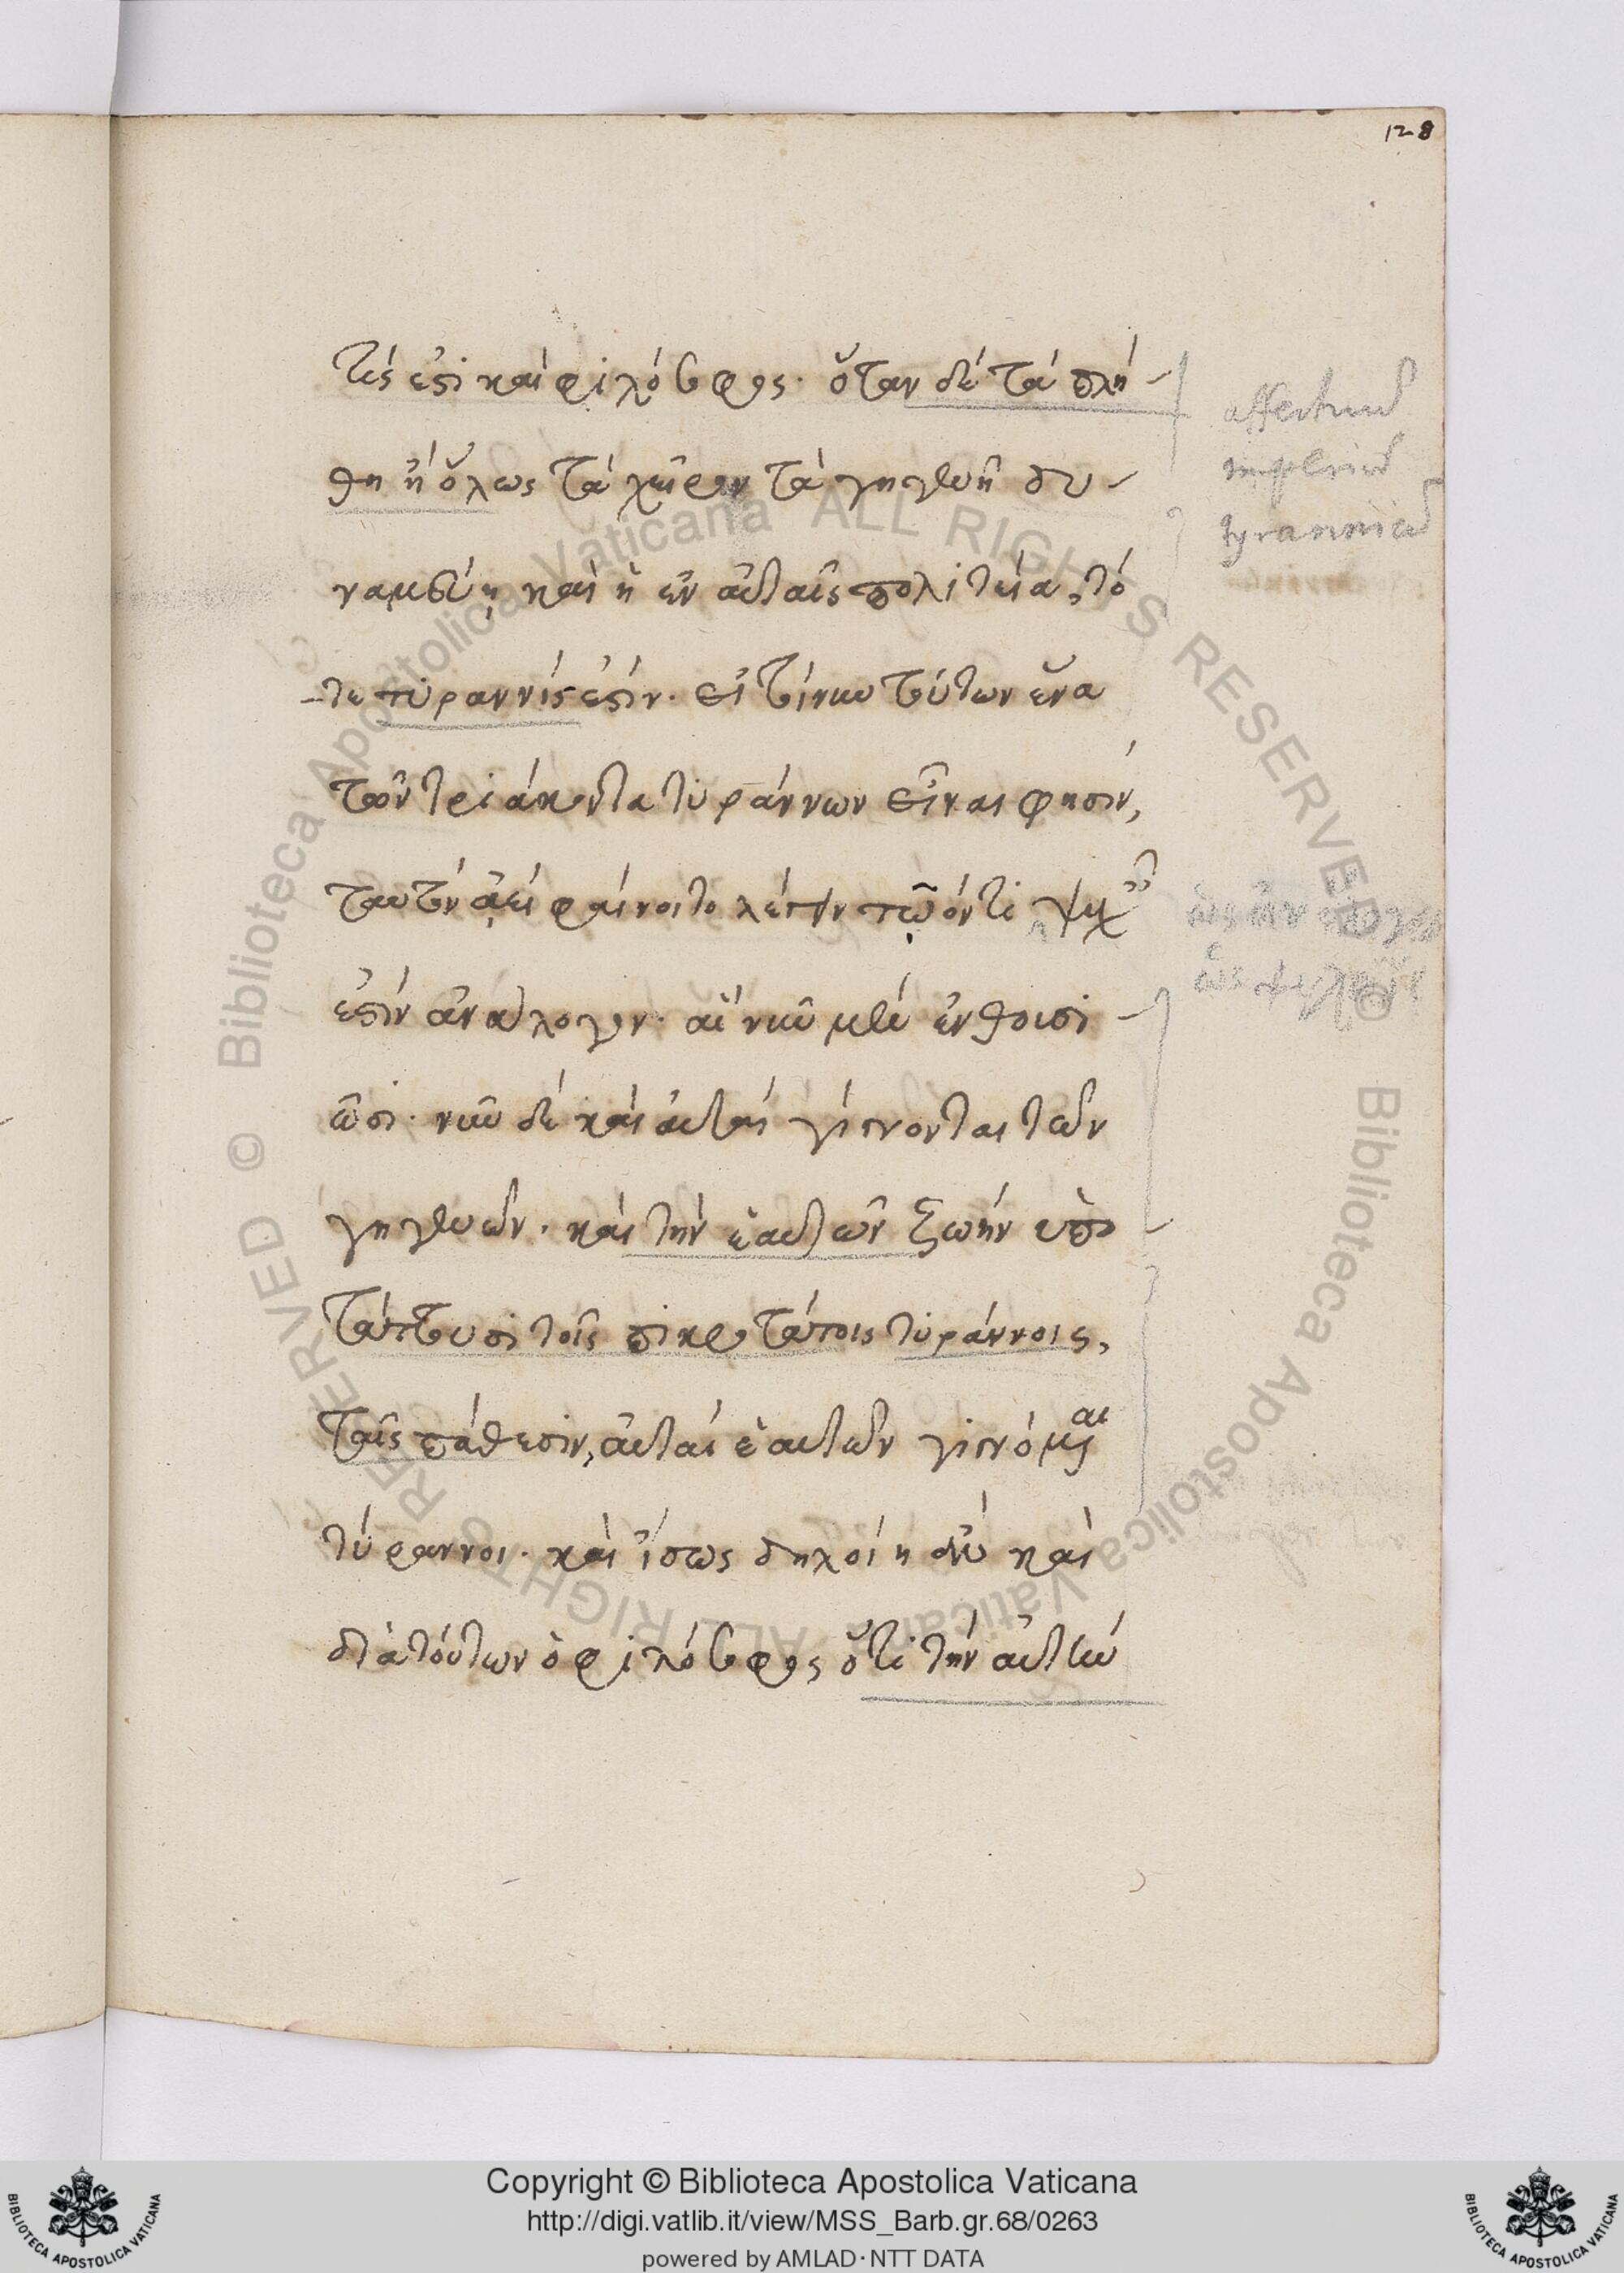 128
τίς ἐστι καὶ φιλόσοφος. ὅταν δὲ τὰ πλή-
θη ἢ ὅλως τὰ χείρονα τὰ γηγενῆ δυ-
ναμένῃ καὶ ἡ ἐν αὐταῖς πολιτεία, τό
τε τυραννίς ἐστίν. εἰ τοίνυν τούτων ἕνα
τῶν τριάκοντα τυράννων εἶναι φησιν,
ταυτὸν ἀεὶ φαίνοιτο λέγων τῷ ὄντι ψυχῶν
ἐστὶν ἀνάλογον. αἳ νῦν μὲν ἐνθουσι
ῶσι. νῦν δὲ καὶ αὐταὶ γίγνονται τῶν
γηγενῶν. καὶ τὴν ἑαυτῶν ζωὴν ὑπο
τάττουσι τοῖς πικροτάτοις τυράννοις,
τοῖς πάθεσιν, αὐταὶ ἑαυτῶν γιγνόμεναι
τύραννοι. καὶ ἴσως δηλοίη ἂν καὶ
διὰ τούτων ὁ φιλόσοφος ὅτι τὴν αὐτὴν
affectuum
imperium
tyrannicum
Copyright © Biblioteca Apostolica Vaticana
http://digi.vatlib.it/view/MSS_Barb.gr.68/0263
powered by AMLAD · NTT DATA
BIBLIOTECA APOSTOLICA VATICANA
BIBLIOTECA APOSTOLICA VATICANA
© Biblioteca Apostolica Vaticana ALL RIGHTS RESERVED © Biblioteca Apostolica Vaticana ALL RIGHTS RESERVED